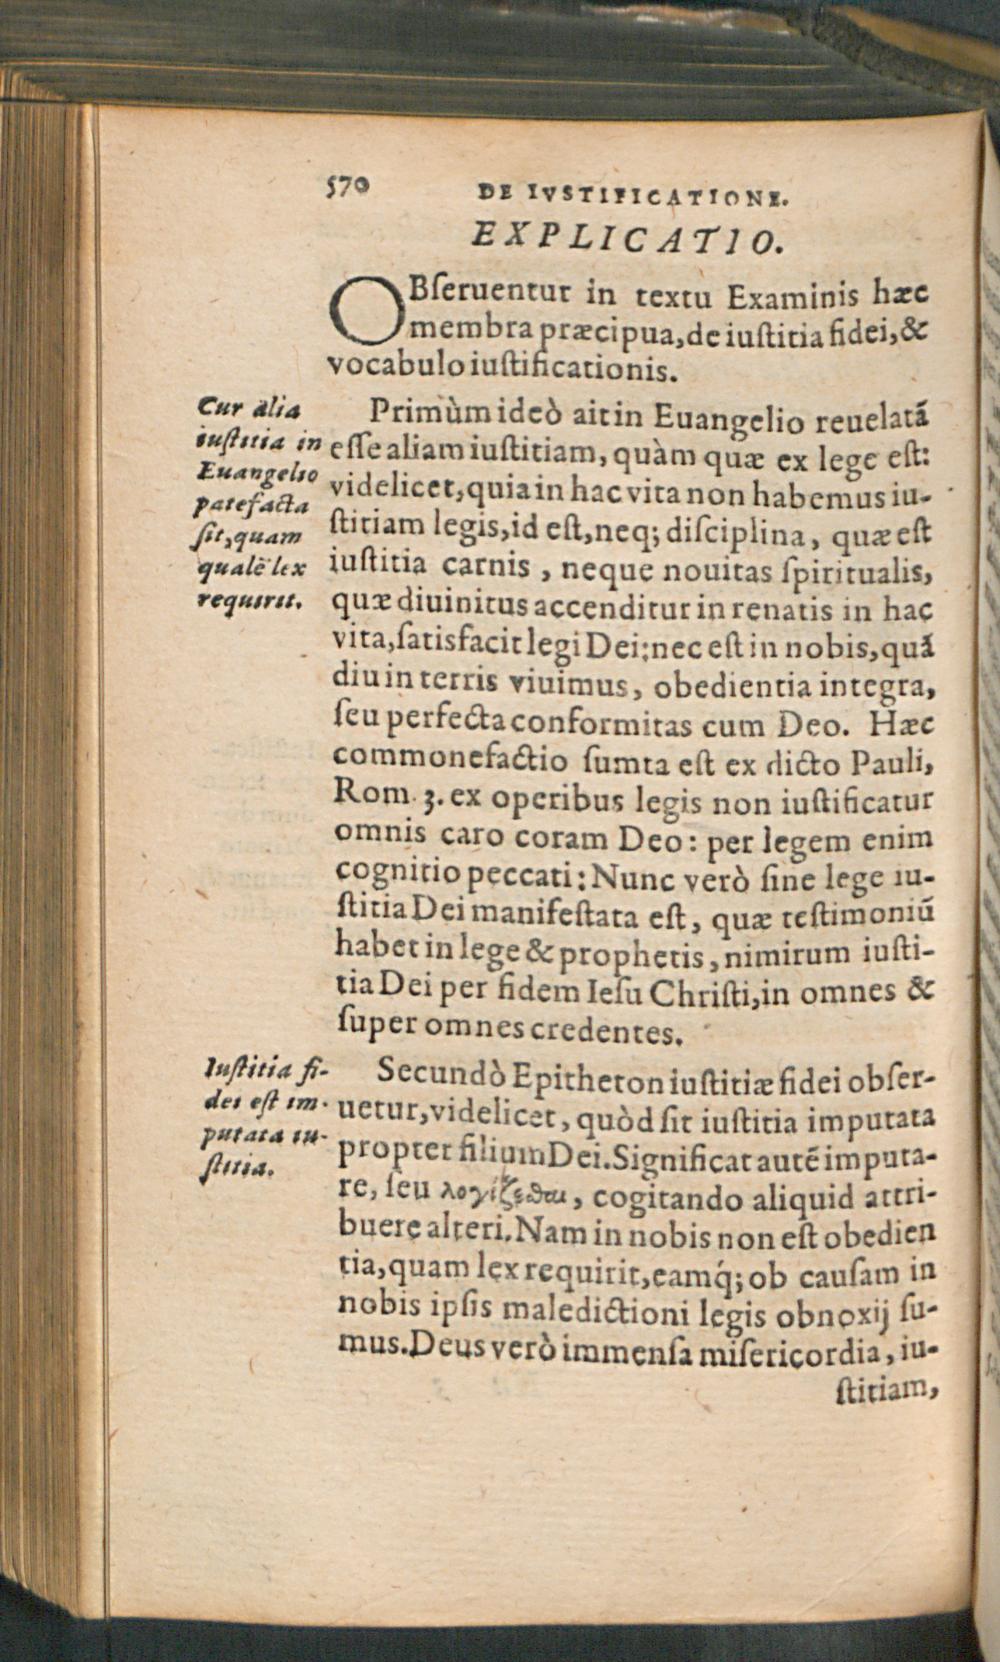 570
DE IVSTIFICATIONE.
EXPLICATIO.
OBſeruentur in textu Examinis hæc
membra præcipua, de iuſtitia fidei, &
vocabulo iuſtificationis.
Cur alia
iuſtitia in
Euangelio
patefacta
ſit, quam
qualē lex
requirit.
Primùm ideò ait in Euangelio reuelatã
eſſe aliam iuſtitiam, quàm quæ ex lege eſt:
videlicet, quia in hac vita non habemus iu-
ſtitiam legis, id eſt, neq; diſciplina, quæ eſt
iuſtitia carnis, neque nouitas ſpiritualis,
quæ diuinitus accenditur in renatis in hac
vita, ſatisfacit legi Dei: nec eſt in nobis, quã
diu in terris viuimus, obedientia integra,
ſeu perfecta conformitas cum Deo. Hæc
commonefactio ſumta eſt ex dicto Pauli,
Rom. 3. ex operibus legis non iuſtificatur
omnis caro coram Deo: per legem enim
cognitio peccati: Nunc verò ſine lege iu-
ſtitia Dei manifeſtata eſt, quæ teſtimoniũ
habet in lege & prophetis, nimirum iuſti-
tia Dei per fidem Ieſu Chriſti, in omnes &
ſuper omnes credentes.
Iuſtitia fi-
dei eſt im-
putata iu-
ſtitia.
Secundò Epitheton iuſtitiæ fidei obſer-
uetur, videlicet, quòd ſit iuſtitia imputata
propter filium Dei. Significat autẽ imputa-
re, ſeu λογίζεϑαι, cogitando aliquid attri-
buere alteri. Nam in nobis non eſt obedien
tia, quam lex requirit, eamq́; ob cauſam in
nobis ipſis maledictioni legis obnoxij ſu-
mus. Deus verò immenſa miſericordia, iu-
ſtitiam,